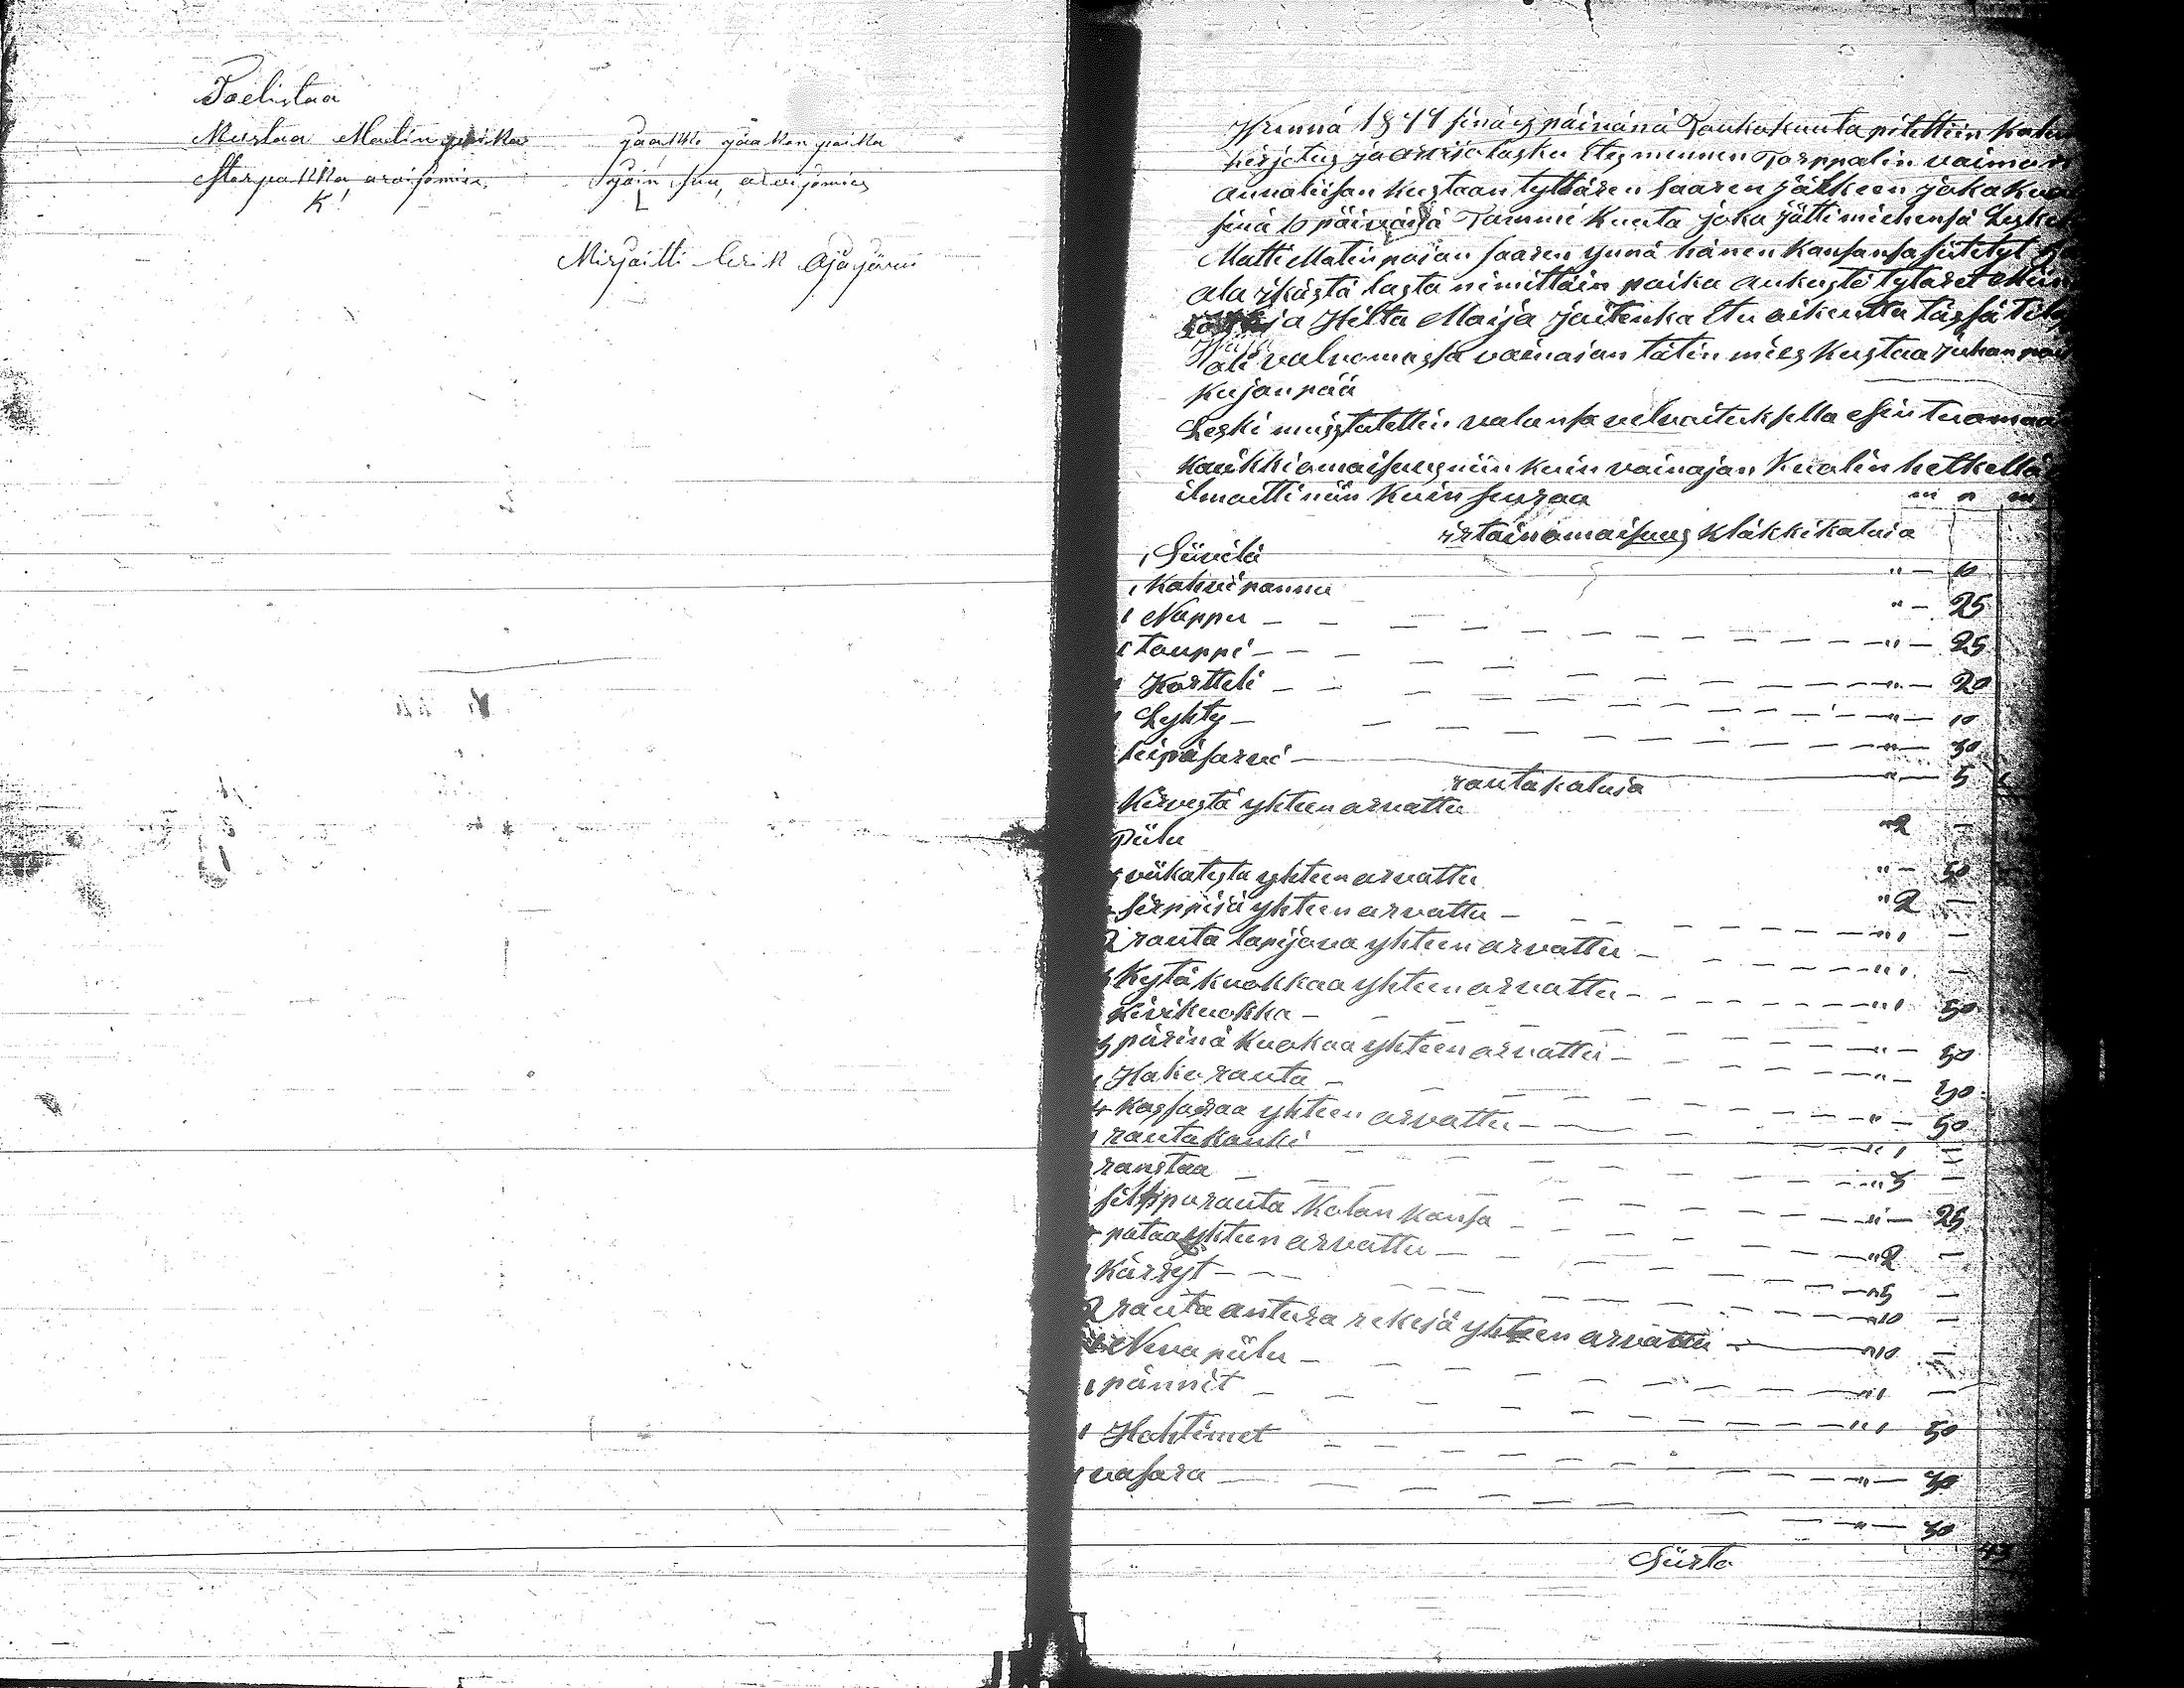 Poelistaa
Kustaa Matin poika
Storpakka arvijomies
K!
Jaakko Jaakon poika
arvijomies
L
Kirjoitti Erik Ojajärvi
Wuonna 1877 sinä päivänä Toukokuuta pitettiin kalu
kirjotus ja arvio lasku Etesmennen Torpparin vaimon
annaliisan kustaan tyttären saaren jälkeen joka kuo
sinä 10 päivänä Tammi Kuuta joka jätti miehensä Lesk
Matti Matinpojan saaren ynnä hänen kansansa siitetyt
ala ikästä lasta nimittäin poika aukusti tytäret
ja Hilta Maija joitenka Etu oikeutta tässä til
oli valvomassa vainajan tätin mies kustaa Juhanpoi
kujanpää
Leski muistutettiin valansa velvoituksella esiin tuomaa
kaikki omaisuus niin kuin vainajan Kuolin hetkellä
ilmoitti niin kuin seuraa
irtain omaisuus kläkkikaluja
1 Siivilä " — 10
1 Kahvipannu " — 25
1 Nappu " — 25
1 Touppi " — 20
1 Kortteli " — 10
1 Lyhty " — 30
leipäsarvi " — 5
rautakaluja
Kirvestä yhteen arvattu " 2 —
Piilu " — 50
viikatesta yhteen arvattu " 2 —
sirppijä yhteen arvattu " 1 —
2 rauta lapijova yhteen arvattu " 1 —
Kytä kuokkaa yhteen arvattu " 1 50
kuokka " — 50
3 pärinä kuokaa yhteen arvattu " —
1 Hako rauta " — 50
4 kassaraa yhteen arvattu " 1 —
1 rautakanki " 3 —
ranstaa " — 25
silpporauta kolan kansa " 2 —
pataa yhteen arvattu " 5 —
1 Kärryt " 10 —
2 rauta antura rekejä yhteen arvattu " 10 —
Neva piilu " 1 —
1 pännit " 1 50
1 Hohtimet " —
1 vasara " — 30
Siirto 43